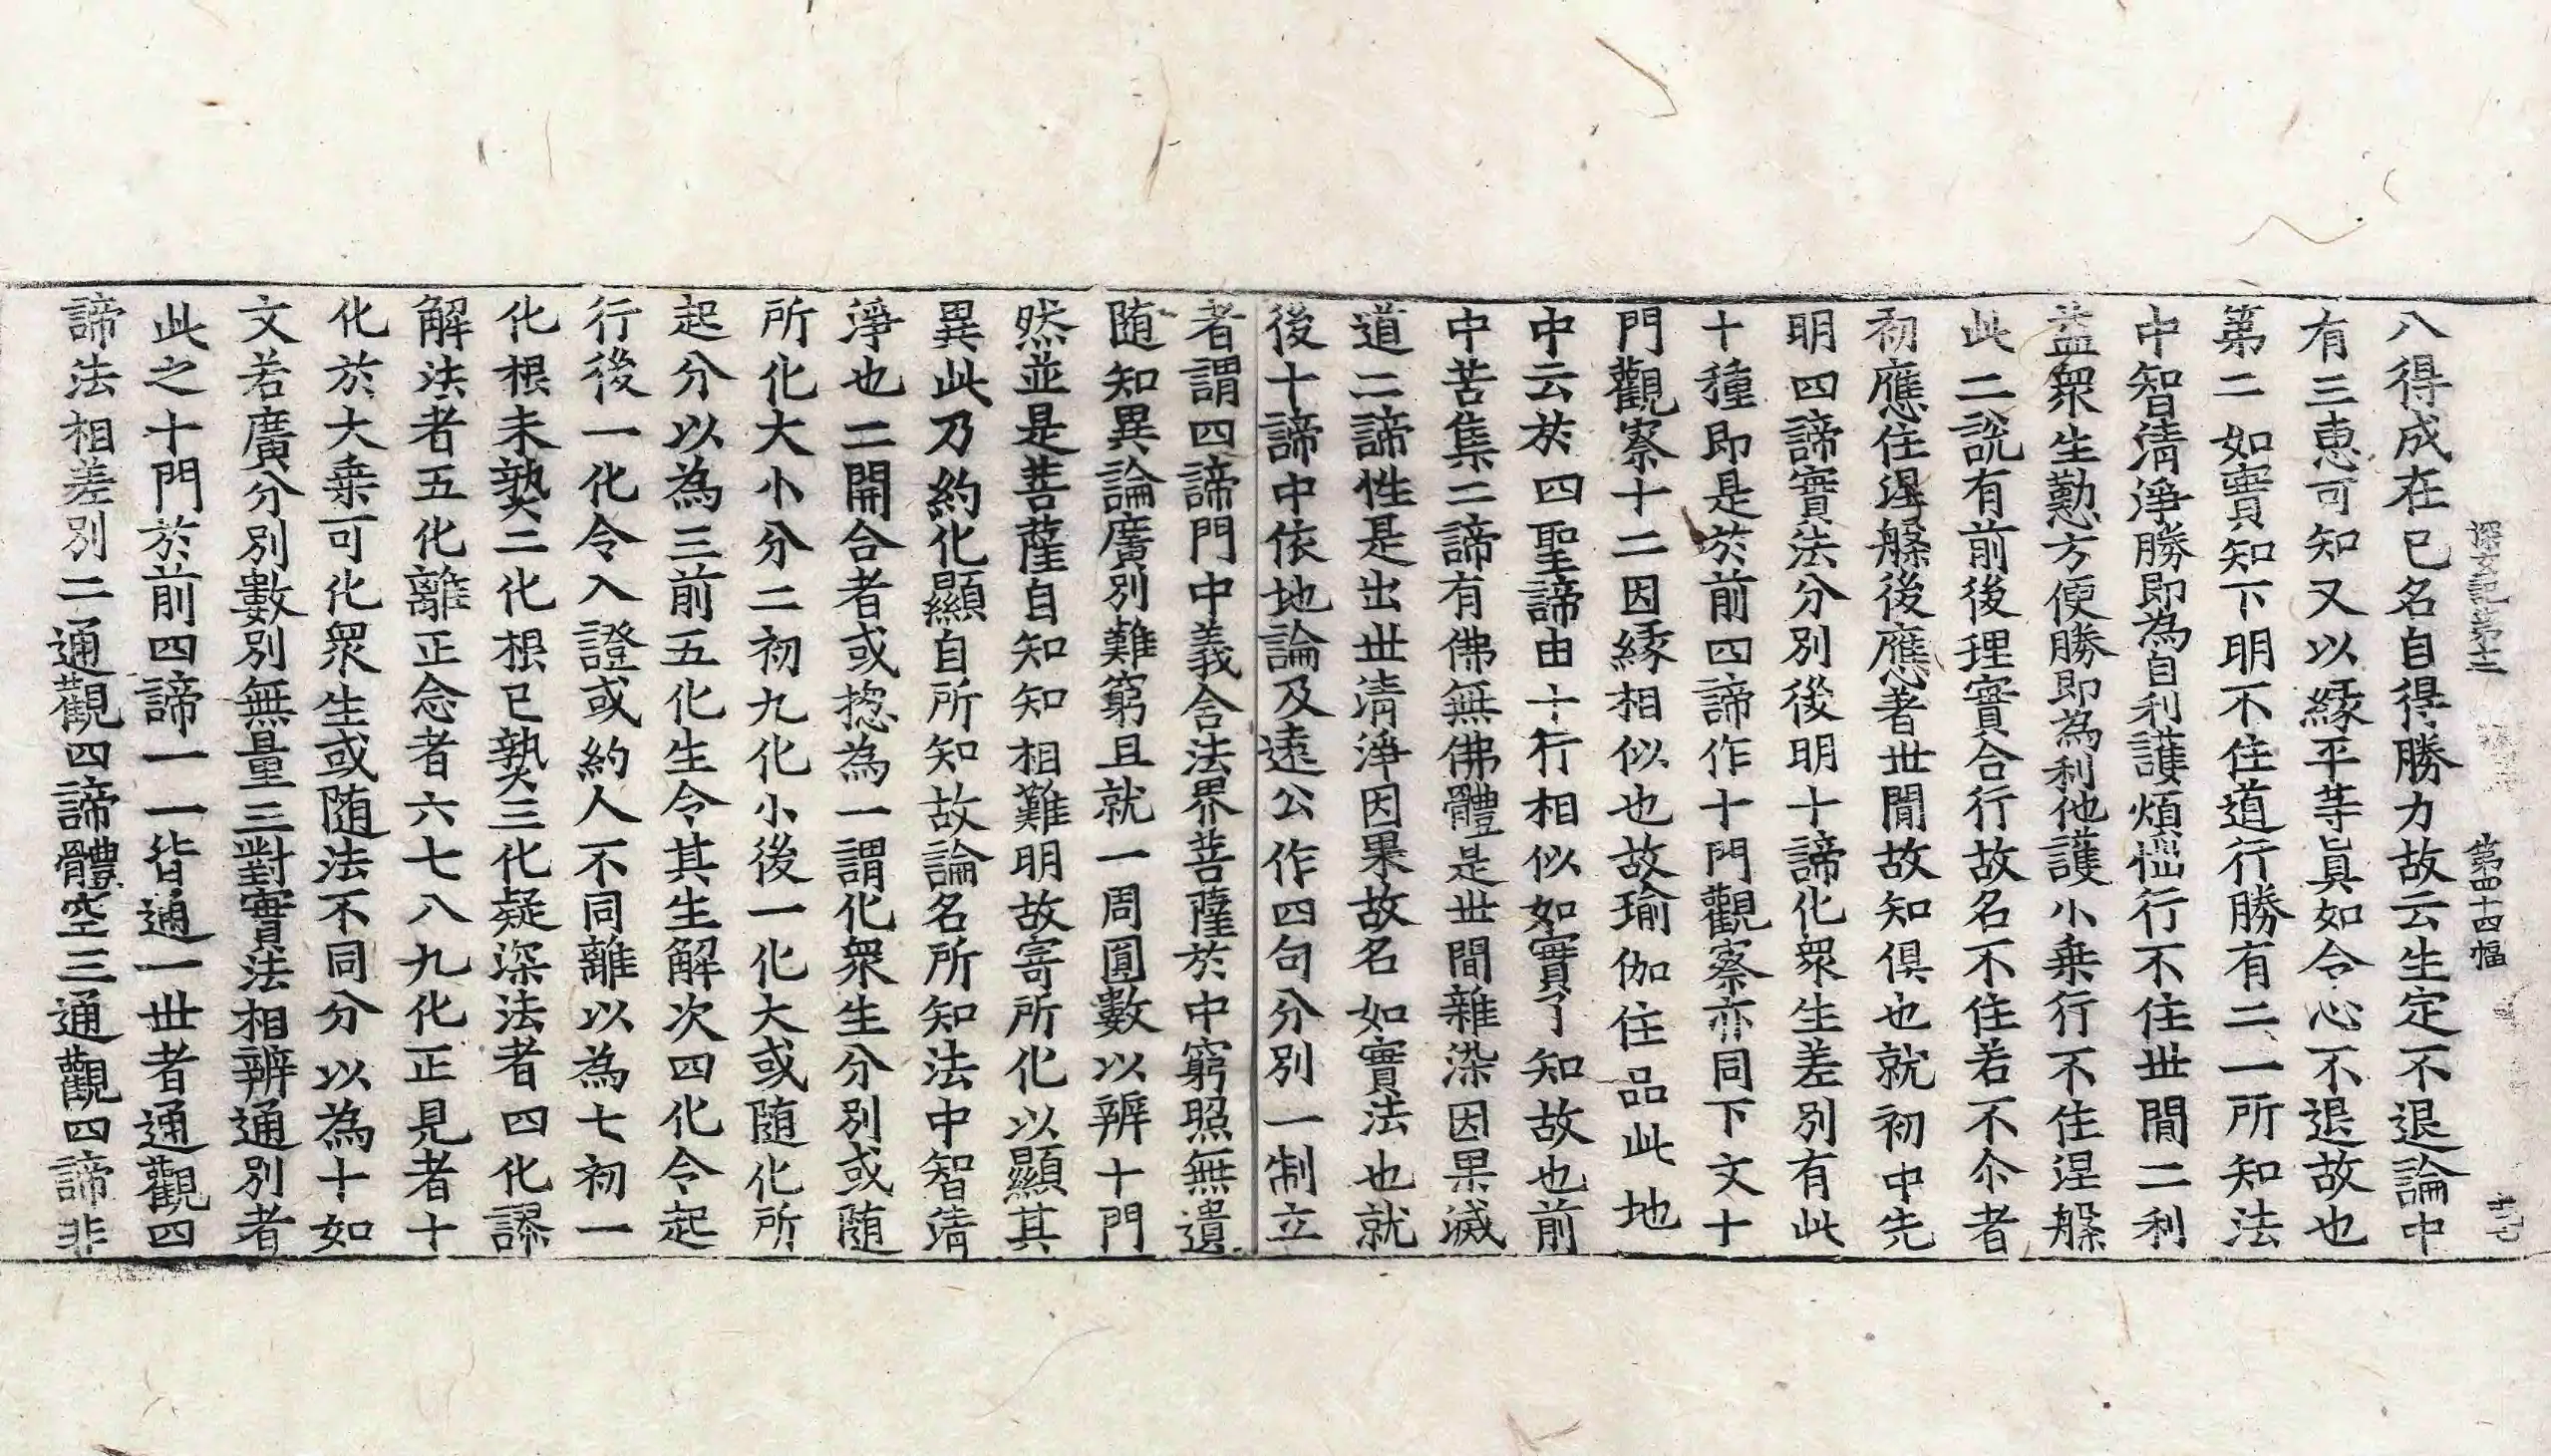 探玄記第十三 第四十四幅
八得成在已名自得勝力故云生定不退論中
有三恵可知又以縁平等真如令心不退故也
第二如實知下明不住道行勝有二一所知法
中智清淨勝即為自利護煩惱行不住世間二利
益衆生勤方便勝即為利他護小乗行不住涅槃
此二説有前後理實合行故名不住若不尒者
初應住涅槃後應著世間故知俱也就初中先
明四諦實法分別後明十諦化衆生差別有此
十種即是於前四諦作十門觀察亦同下文十
門觀察十二因縁相似也故瑜伽住品此地
中云於四聖諦由十行相似如實了知故也前
中苦集二諦有佛無佛體是世間雜染因果滅
道二諦性是出世清淨因果故名如實法也就
後十諦中依地論及遠公作四句分別一制立
者謂四諦門中義含法界菩薩於中窮照無遺
随知異論廣別難窮且就一周圓數以辨十門
然並是菩薩自知知相難明故寄所化以顯其
異此乃約化顯自所知故論名所知法中智清
淨也二開合者或揔為一謂化衆生分別或随
所化大小分二初九化小後一化大或随化所
起分以為三前五化生令其生解次四化令起
行後一化令入證或約人不同離以為七初一
化根未熟二化根已熟三化疑深法者四化謬
解法者五化離正念者六七八九化正見者十
化於大乗可化衆生或随法不同分以為十如
文若廣分別數別無量三對實法相辨通別者
此之十門於前四諦一一皆通一世者通觀四
諦法相差別二通觀四諦體空三通觀四諦非